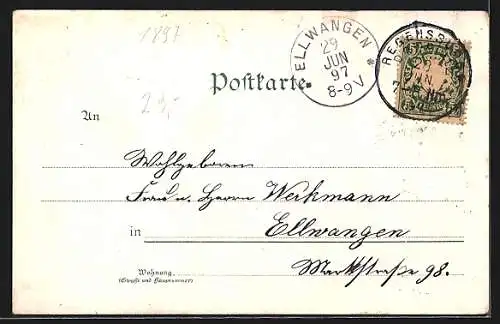 1897
ELLWANGEN
29
JUN
97
8-9 V
REGENSBURG
29,-
Postkarte.
An
Wohlgeboren
Frau u. Herrn Werkmann
in Ellwangen
Marktstraße 98.
Wohnung
(Straße und Hausnummer)